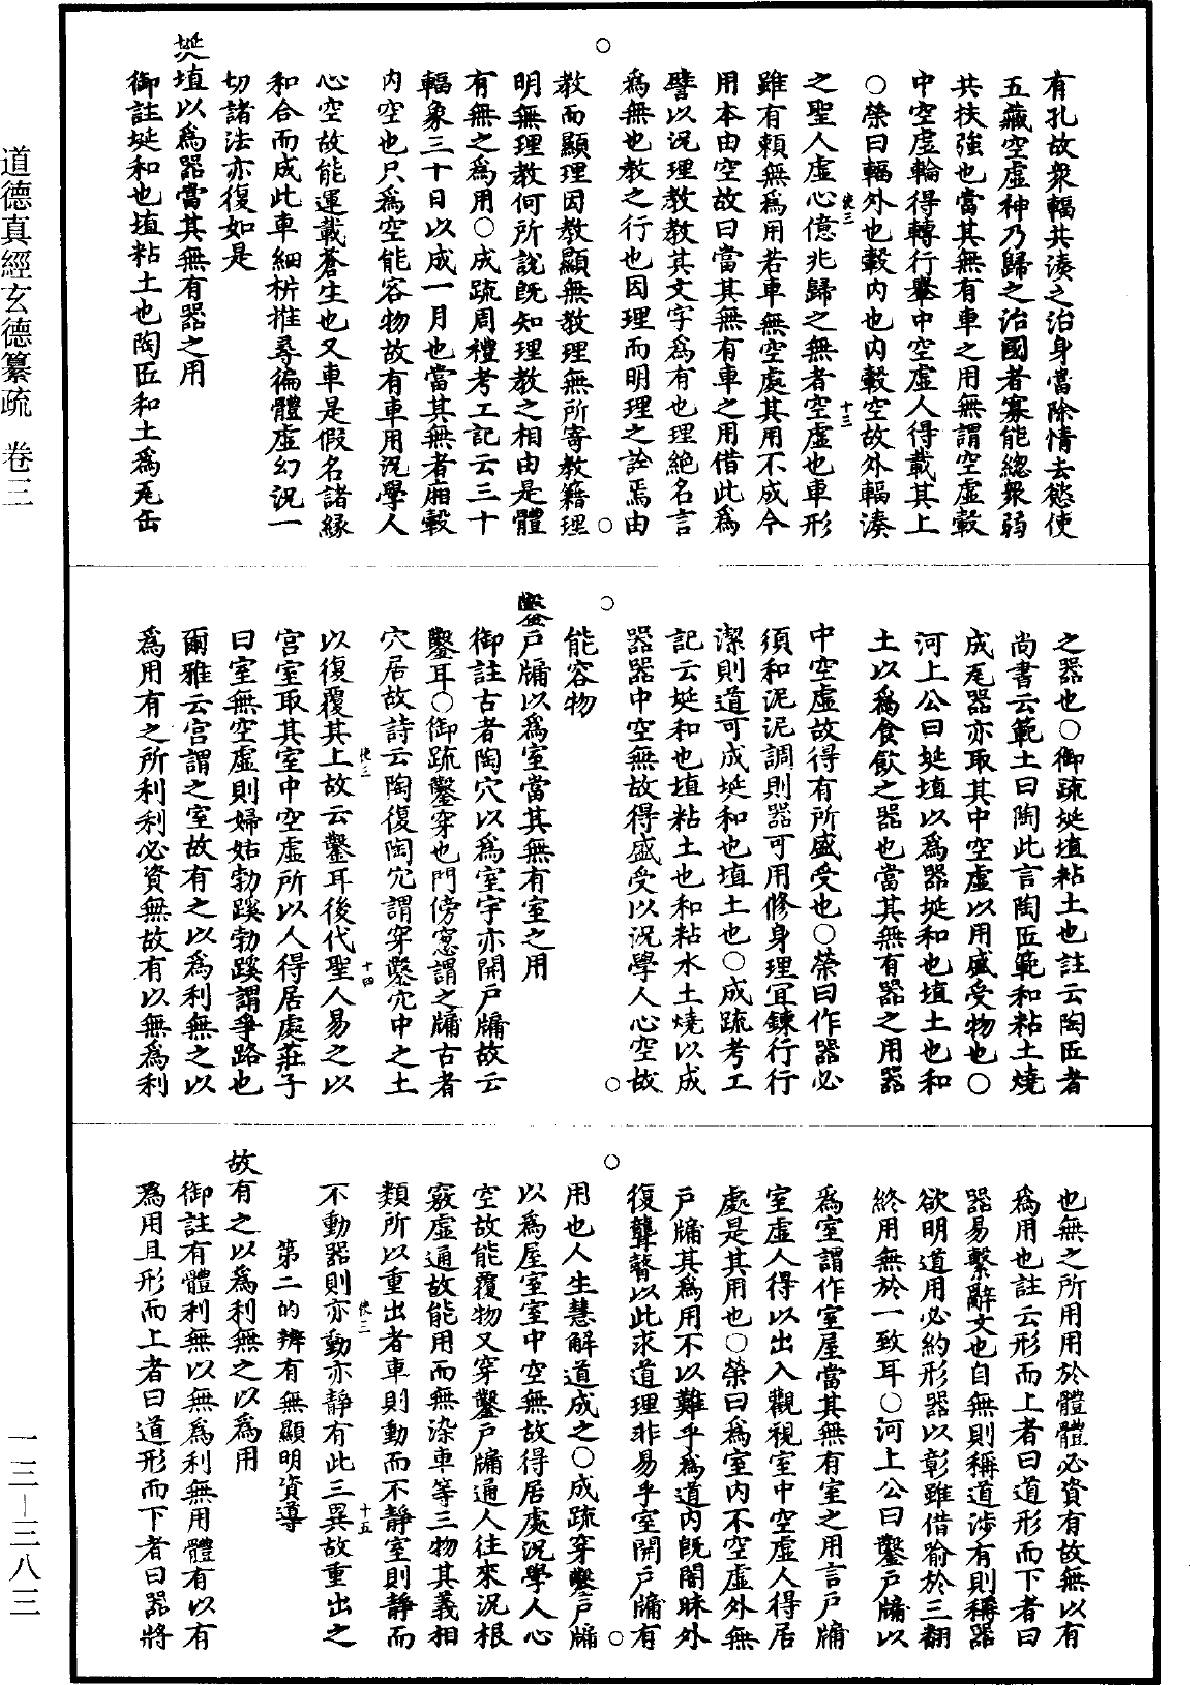 道德真經玄德纂疏　卷三
有孔故衆輻共湊之治身當除情去慾使
五藏空虛神乃歸之治國者寡能總衆弱
共扶強也當其無有車之用無謂空虛轂
中空虛輪得轉行轝中空虛人得載其上
○榮曰輻外也轂內也內轂空故外輻湊
之聖人虛心億兆歸之無者空虛也車形
雖有賴無爲用若車無空處其用不成今
用本由空故曰當其無有車之用借此爲
譬以況理教教其文字爲有也理絶名言
爲無也教之行也因理而明理之詮焉由
教而顯理因教顯無教理無所寄教籍理
明無理教何所說既知理教之相由是體
有無之爲用○成疏周禮考工記云三十
輻象三十日以成一月也當其無者廂轂
內空也只爲空能容物故有車用況學人
心空故能運載蒼生也又車是假名諸緣
和合而成此車細析推尋徧體虛幻況一
切諸法亦復如是
埏埴以爲器當其無有器之用
御註埏和也埴粘土也陶匠和土爲瓦缶
之器也○御疏埏埴粘土也註云陶匠者
尚書云範土曰陶此言陶匠範和粘土燒
成瓦器亦取其中空虛以用盛受物也○
河上公曰埏埴以爲器埏和也埴土也和
土以爲食飲之器也當其無有器之用器
中空虛故得有所盛受也○榮曰作器必
須和泥泥調則器可用修身理宜鍊行行
潔則道可成埏和也埴土也○成疏考工
記云埏和也埴粘土也和粘水土燒以成
器器中空無故得盛受以況學人心空故
能容物
鑿戶牖以爲室當其無有室之用
御註古者陶穴以爲室宇亦開戶牖故云
鑿耳○御疏鑿穿也門傍窻謂之牖古者
穴居故詩云陶復陶穴謂穿鑿穴中之土
以復覆其上故云鑿耳後代聖人易之以
宮室取其室中空虛所以人得居處莊子
曰室無空虛則婦姑勃蹊勃蹊謂爭路也
爾雅云宮謂之室故有之以爲利無之以
爲用有之所利利必資無故有以無爲利
也無之所用用於體體必資有故無以有
爲用也註云形而上者曰道形而下者曰
器易繫辭文也自無則稱道涉有則稱器
欲明道用必約形器以彰雖借喻於三翻
終用無於一致耳○河上公曰鑿戶牖以
爲室謂作室屋當其無有室之用言戶牖
室虛人得以出入觀視室中空虛人得居
處是其用也○榮曰爲室內不空虛外無
戶牖其爲用不以難乎爲道內既闇昧外
復聾瞽以此求道理非易乎室開戶牖有
用也人生慧解道成之○成疏穿鑿戶牖
以爲屋室室中空無故得居處況學人心
空故能覆物又穿鑿戶牖通人往來況根
竅虛通故能用而無染車等三物其義相
類所以重出者車則動而不靜室則靜而
不動器則亦動亦靜有此三異故重出之
第二的辨有無顯明資導
故有之以爲利無之以爲用
御註有體利無以無爲利無用體有以有
爲用且形而上者曰道形而下者曰器將
一三－三八三